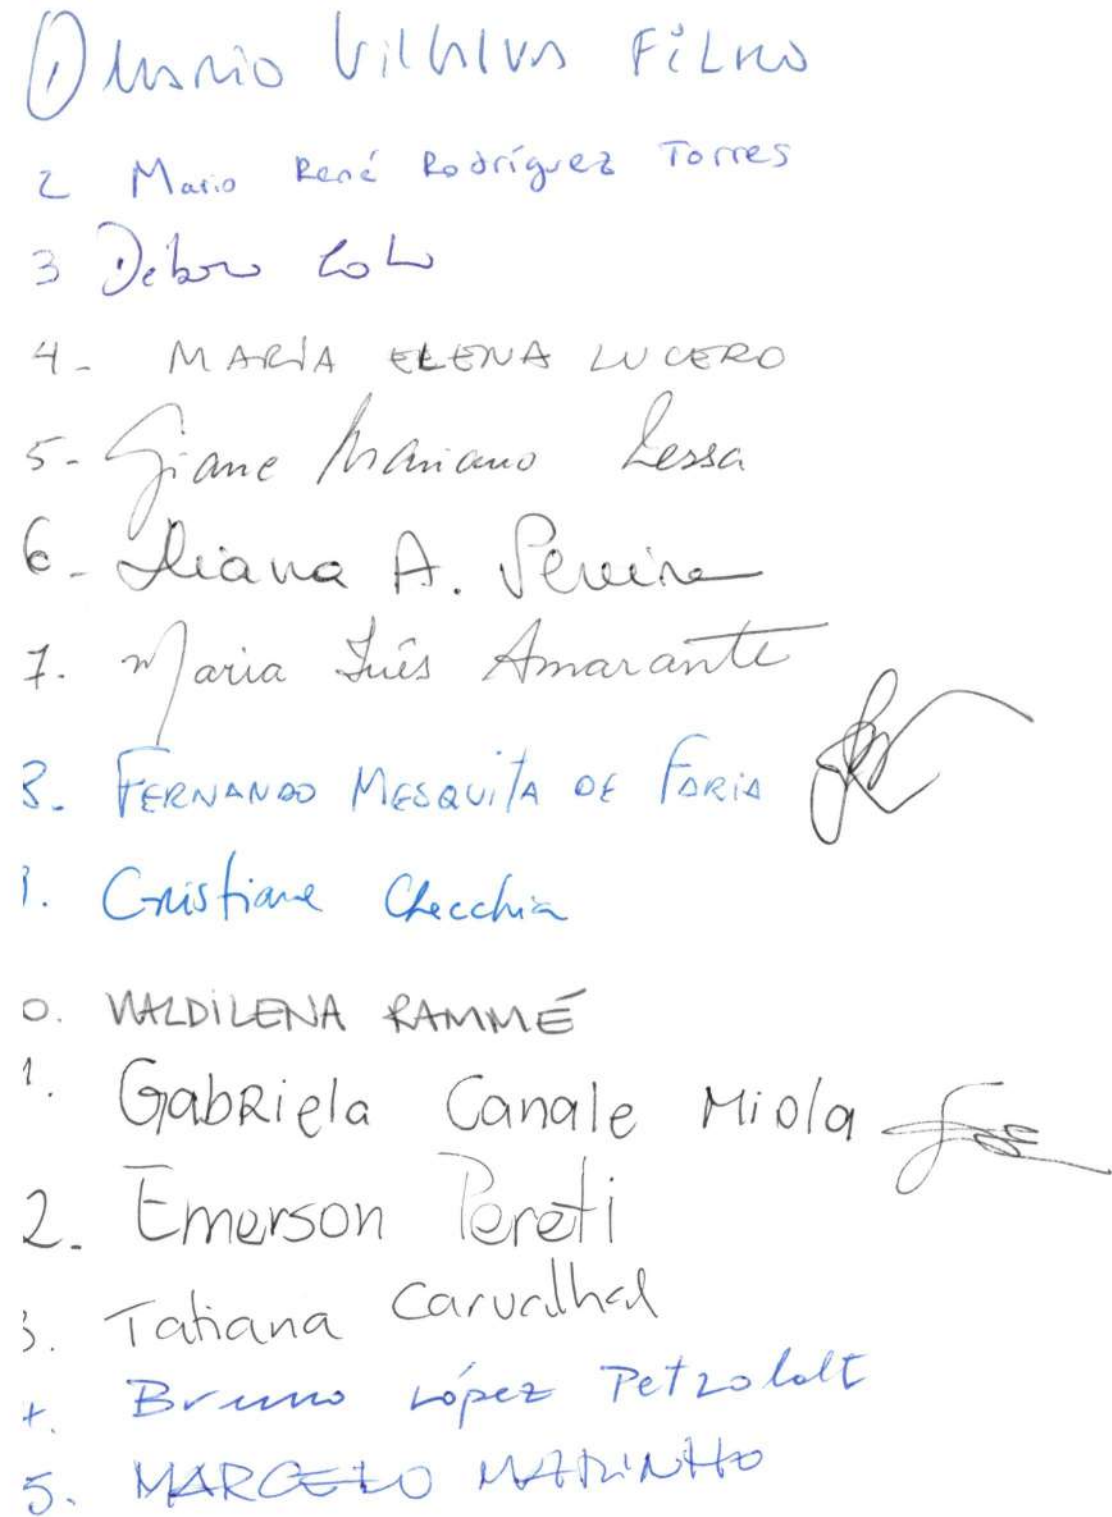 1 Mario Vilhalva Filho
2 Mario René Rodríguez Torres
3 Débora Cota
4- MARÍA ELENA LUCERO
5- Giane Mariano Lessa
6- Diana A. Pereira
7. Maria Inês Amarante
8. FERNANDO MESQUITA DE FARIA
9. Cristiane Checchia
0. WALDILENA RAMMÉ
1. Gabriela Canale Miola
2. Emerson Pereti
3. Tatiana Carvalhal
4. Bruno López Petzoldt
5. MARCELO MARINHO